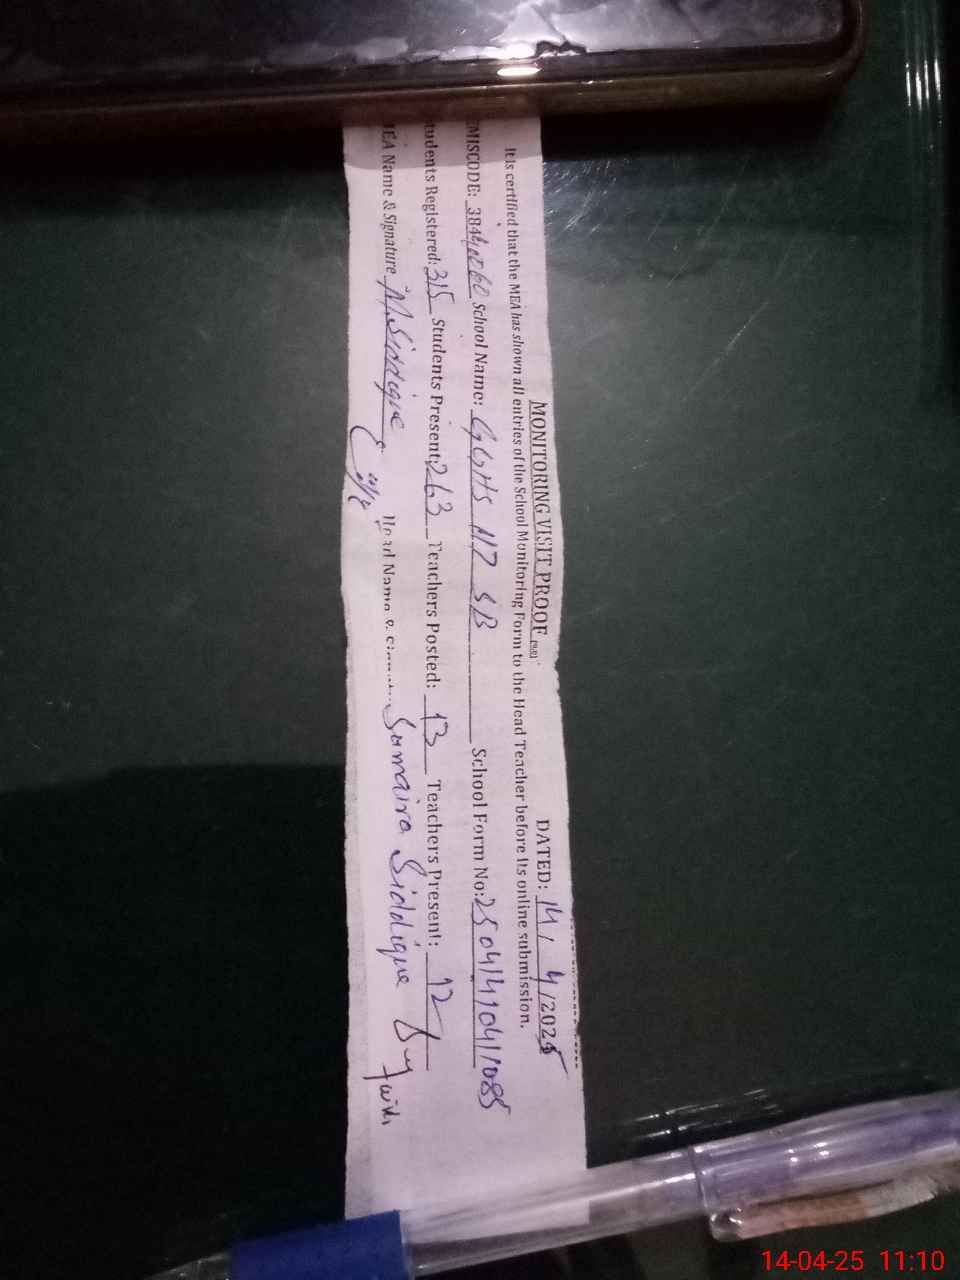 MONITORING VISIT PROOF DATED: 14/4/2025
It is certified that the MEA has shown all entries of the School Monitoring Form to the Head Teacher before its online submission.
EMISCODE: School Name: GGHS 117 SB School Form No:
Students Registered: 315 Students Present: 263 Teachers Posted: 13 Teachers Present: 12
MEA Name & Signature M.Siddique Head Name & Sumaira Siddique
14-04-25 11:10